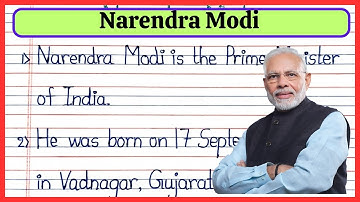 Narendra Modi
1) Narendra Modi is the Prime Minister
of India.
2) He was born on 17 Septe
in Vadnagar, Gujarat